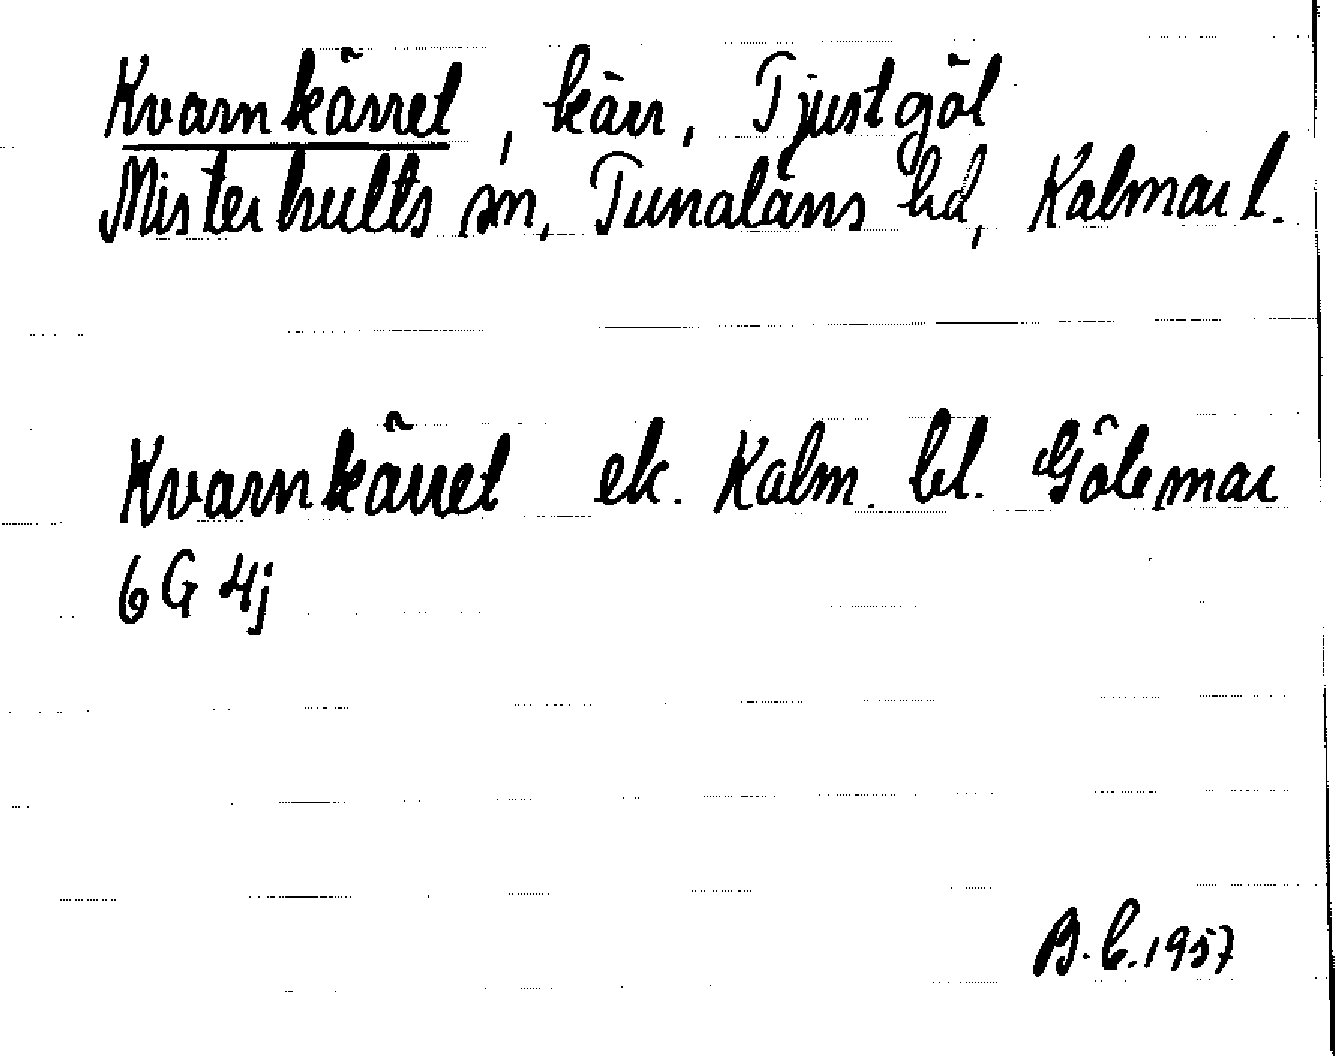 Kvarnkärret, kärr, Tjustgöl
Misterhults sn, Tunaläns hd, Kalmar l.
Kvarnkärret ek. Kalm. bl. Götemar
6G 4j
B.L. 1957